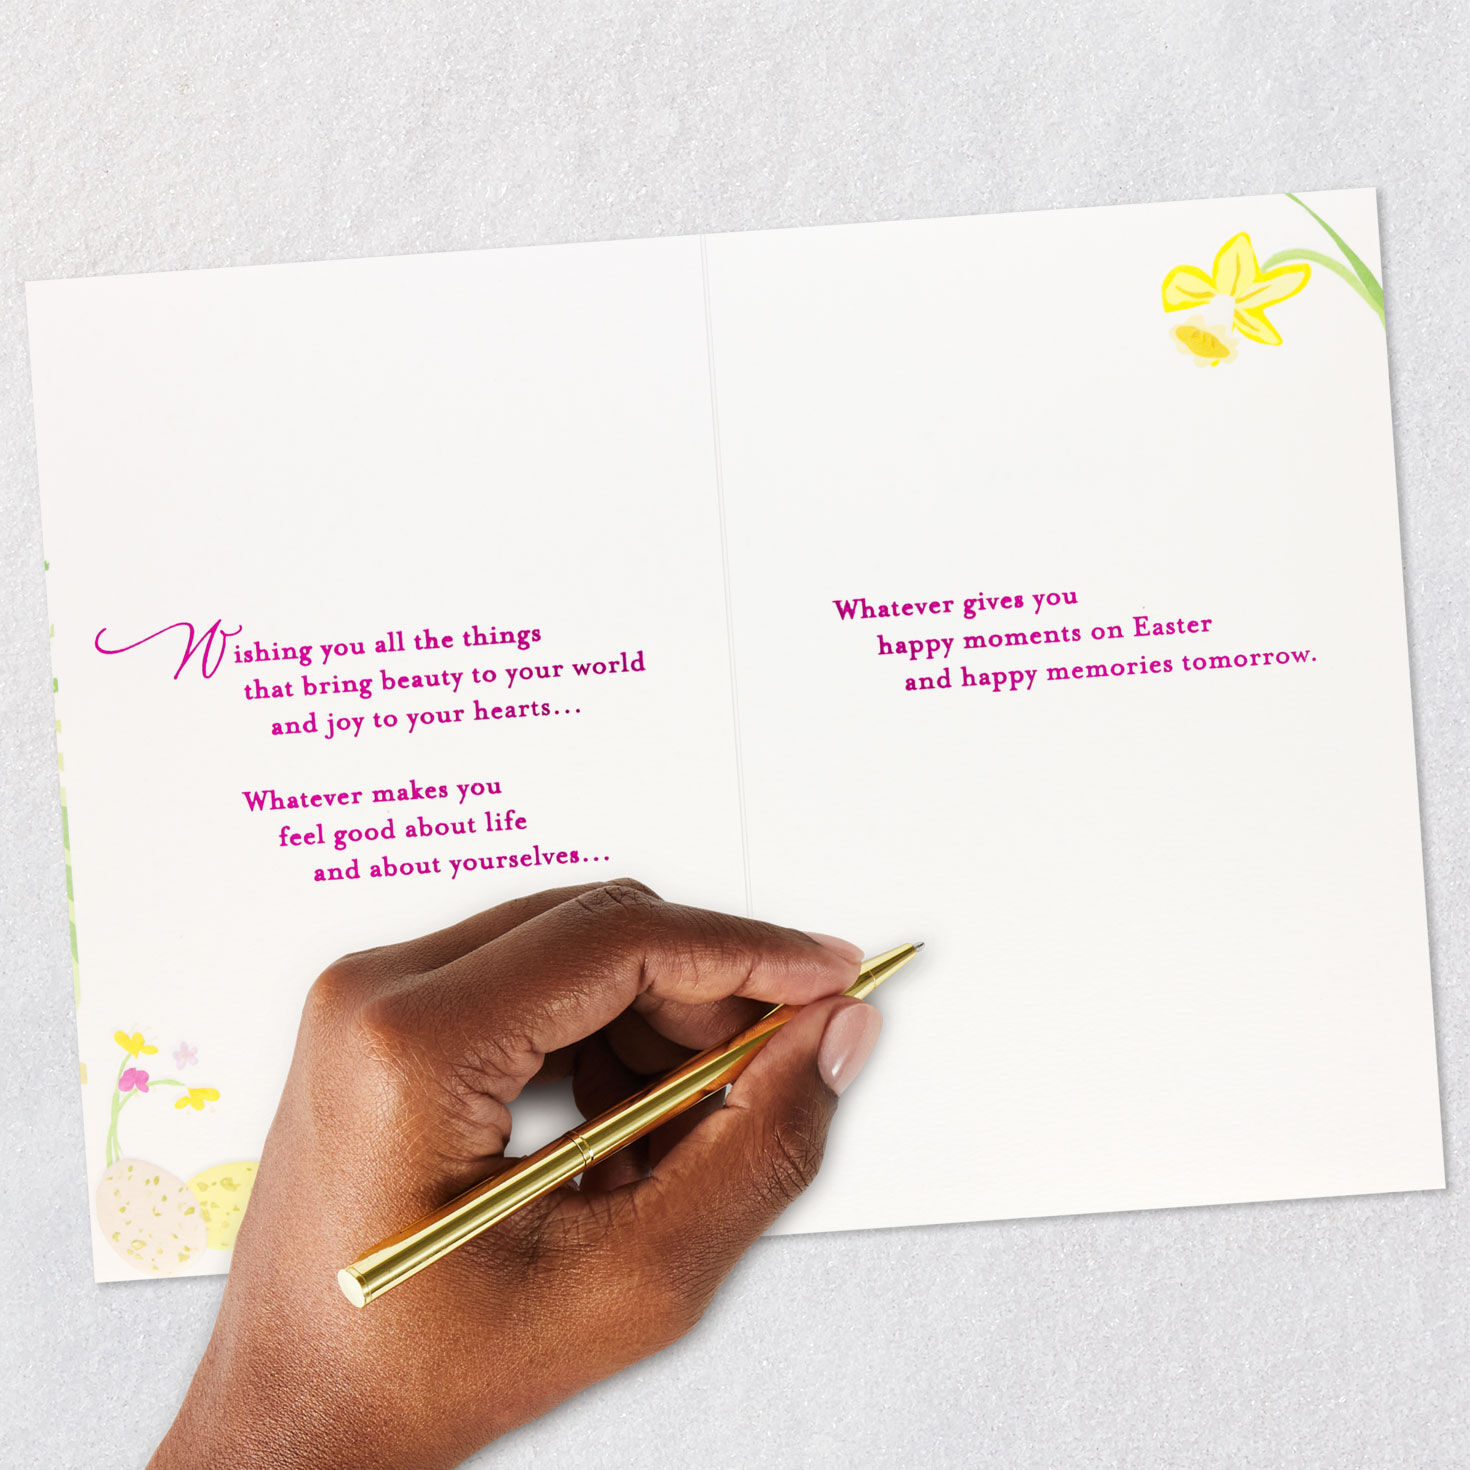 Wishing you all the things
that bring beauty to your world
and joy to your hearts...
Whatever makes you
feel good about life
and about yourselves...
Whatever gives you
happy moments on Easter
and happy memories tomorrow.